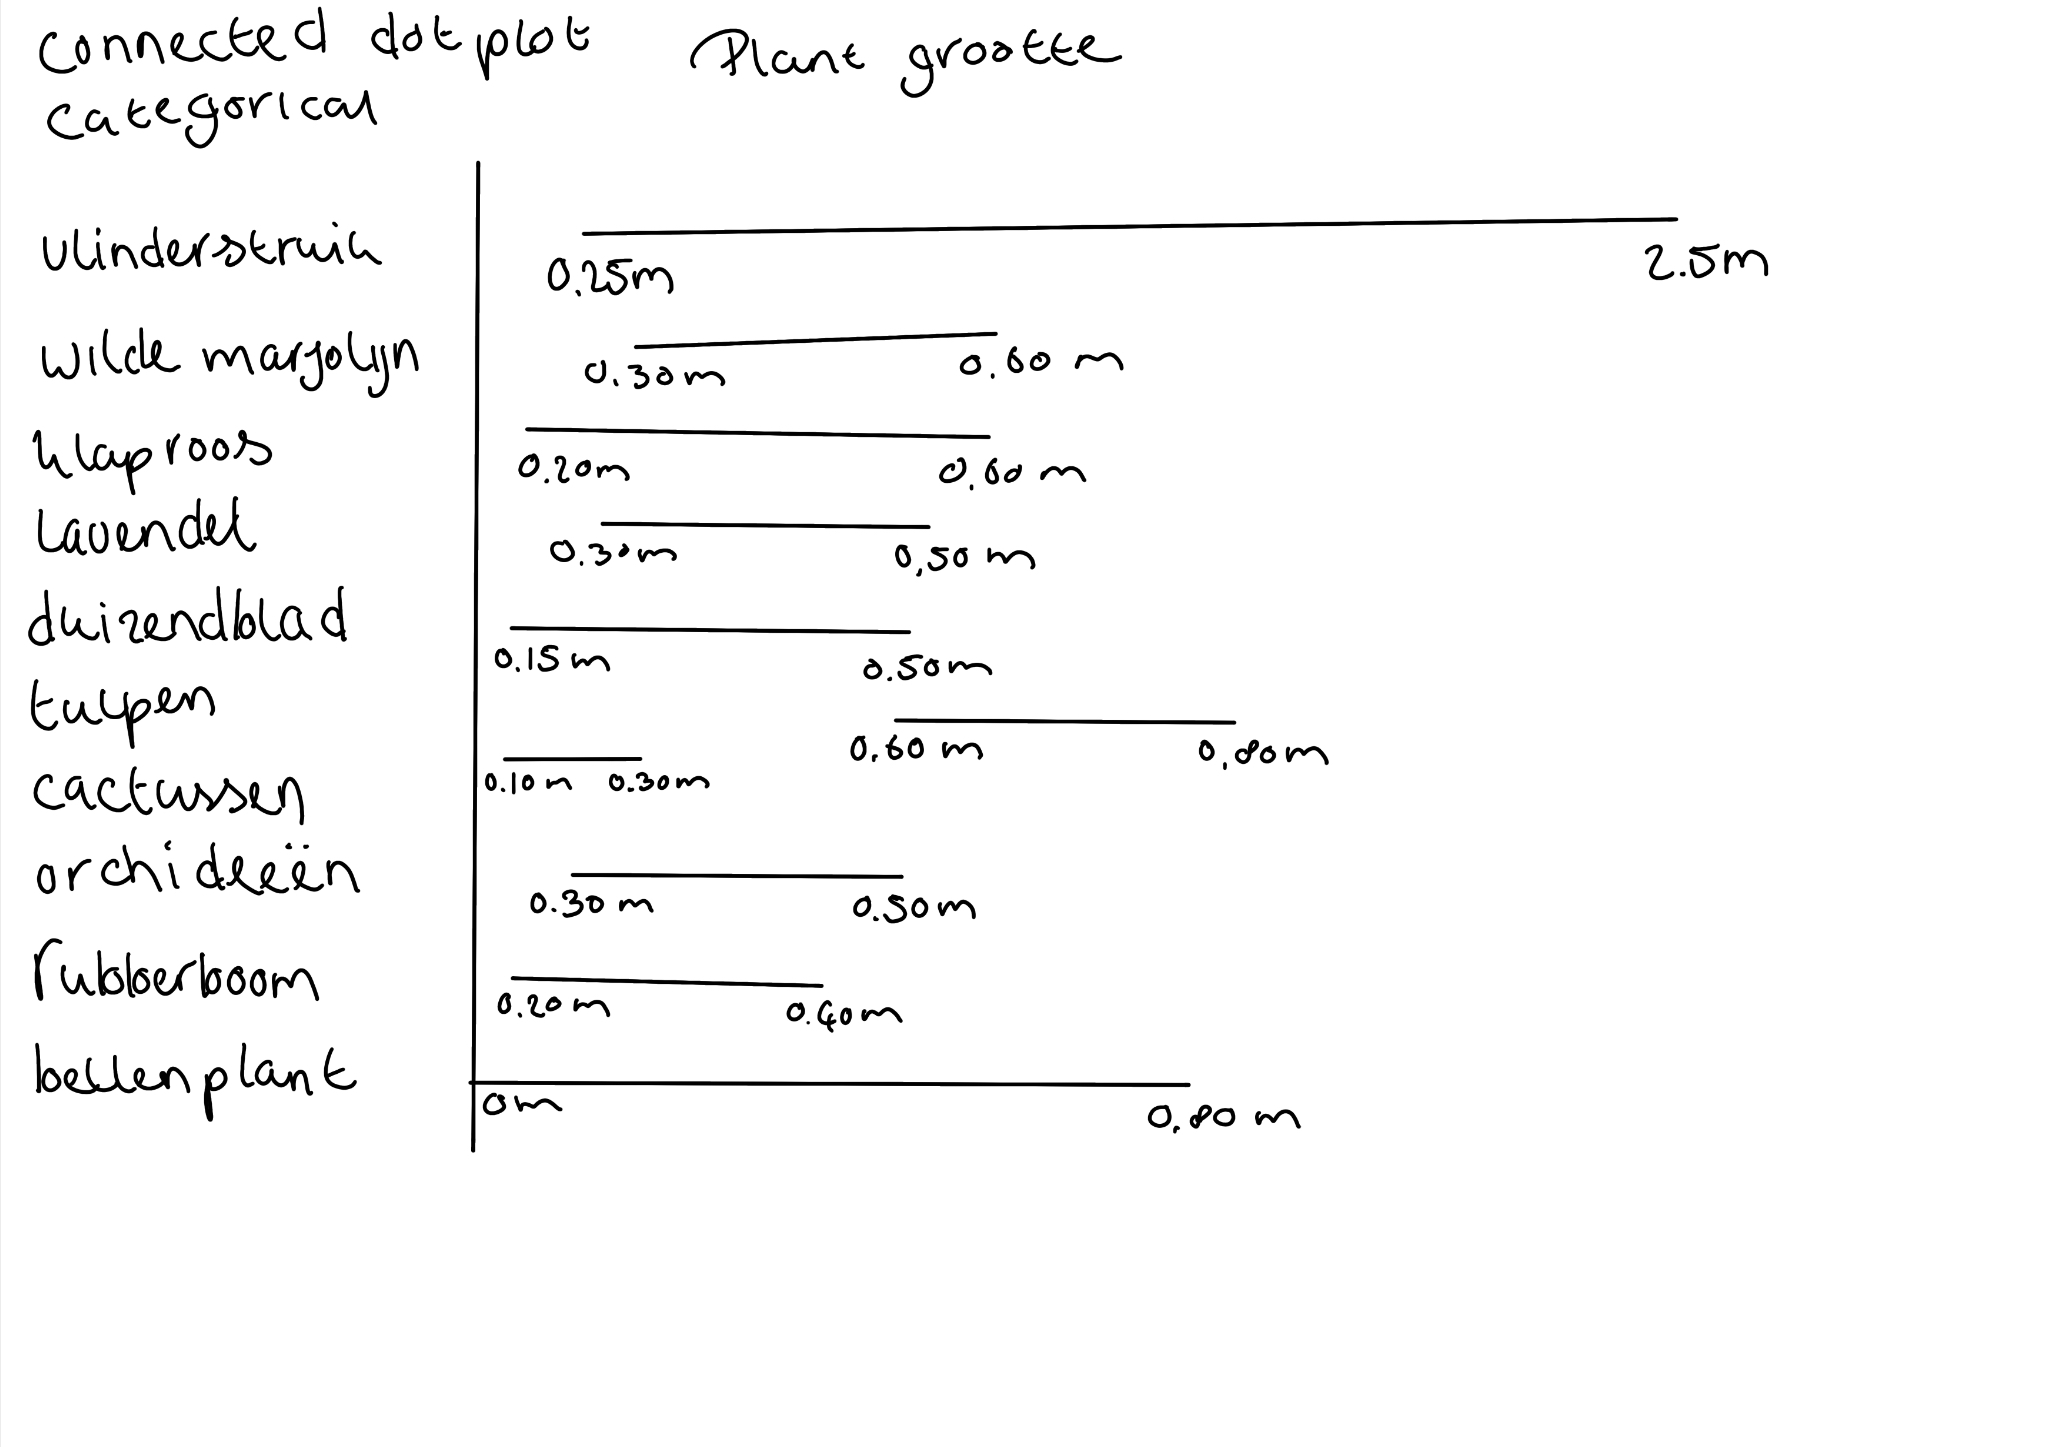 connected dot plot Plant grootte
categorical
vlinderstruik
0.25m 2.5m
wilde marjolijn
0.30m 0.60 m
klaproos
0.20m 0.60 m
Lavendel
0.30m 0,50 m
duizendblad
0.15m 0.50m
tulpen
0.60 m 0,80m
cactussen
0.10m 0.30m
orchideeën
0.30 m 0.50m
rubberboom
0.20m 0.40m
bellenplant
0m 0.80 m